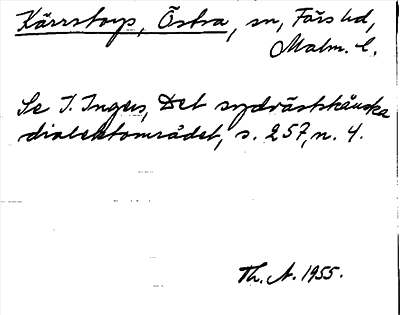 Kärrstorp, Östra, sn, Färs hd,
Malm. l.
Se I. Ingers, Det sydvästskånska
dialektområdet, s. 257, n. 4.
Th. A. 1955.